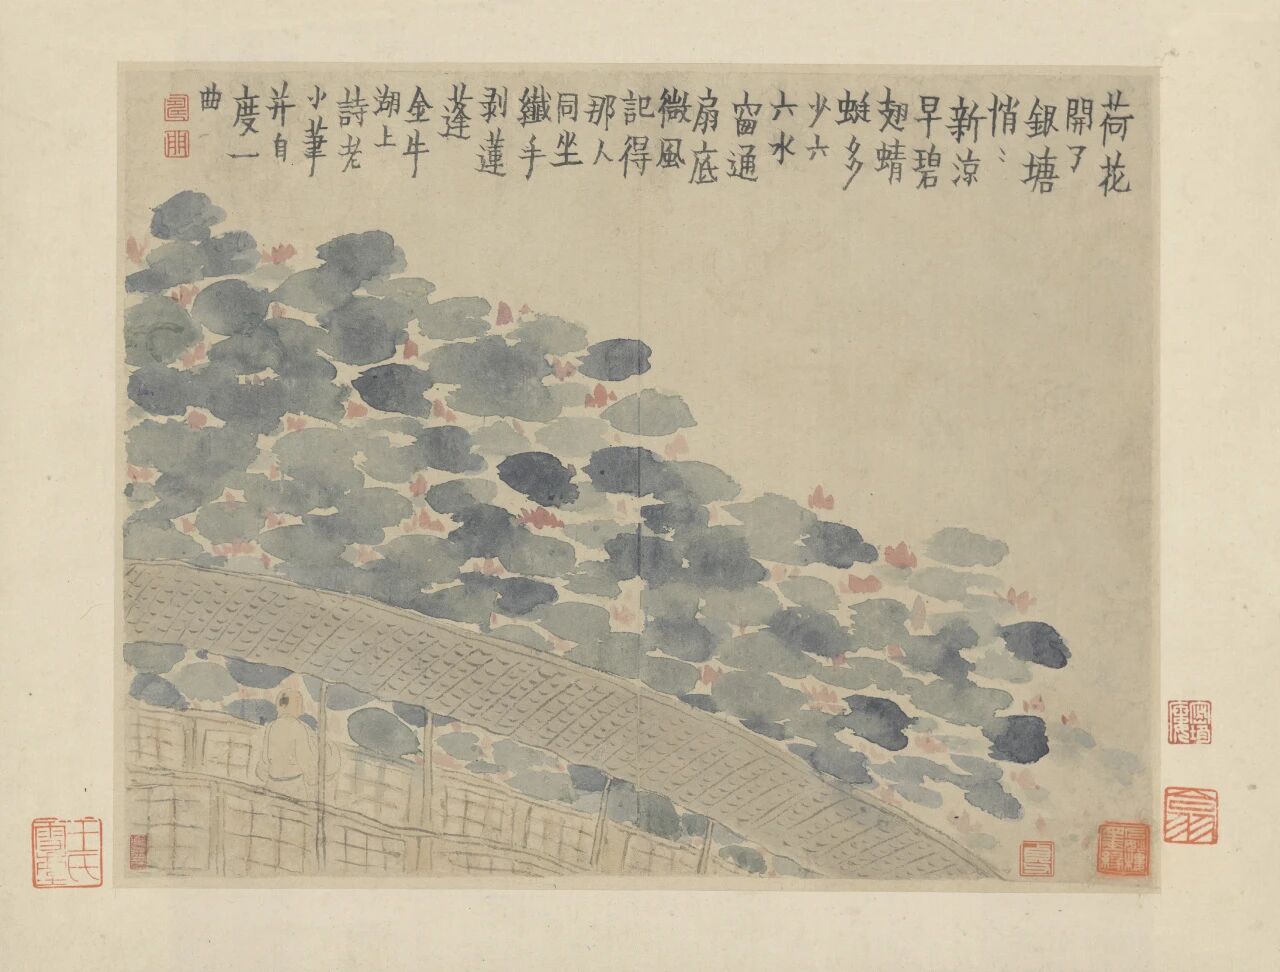 荷花
開了
銀塘
悄〻
新涼
早碧
翅蜻
蜓多
少六
六水
窗通
扇底
微風
記得
那人
同坐
纖手
剥蓮
蓬
金牛
湖上
詩老
小筆
并自
度一
曲